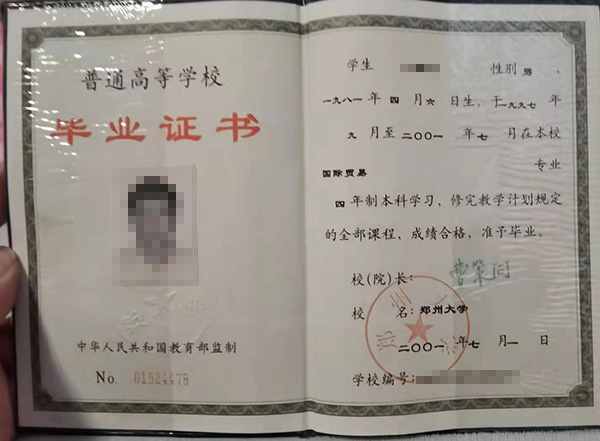 普通高等学校
毕业证书
中华人民共和国教育部监制
No.
学生 性别 男 ,
一九八一年 四 月 六 日生, 于一九九七 年
九 月至 二〇〇一 年 七 月在本校
国际贸易 专业
四 年制本科学习, 修完教学计划规定
的全部课程, 成绩合格, 准予毕业。
校(院)长:
校 名: 郑州大学
二〇〇一 年 七 月 一 日
学校编号: